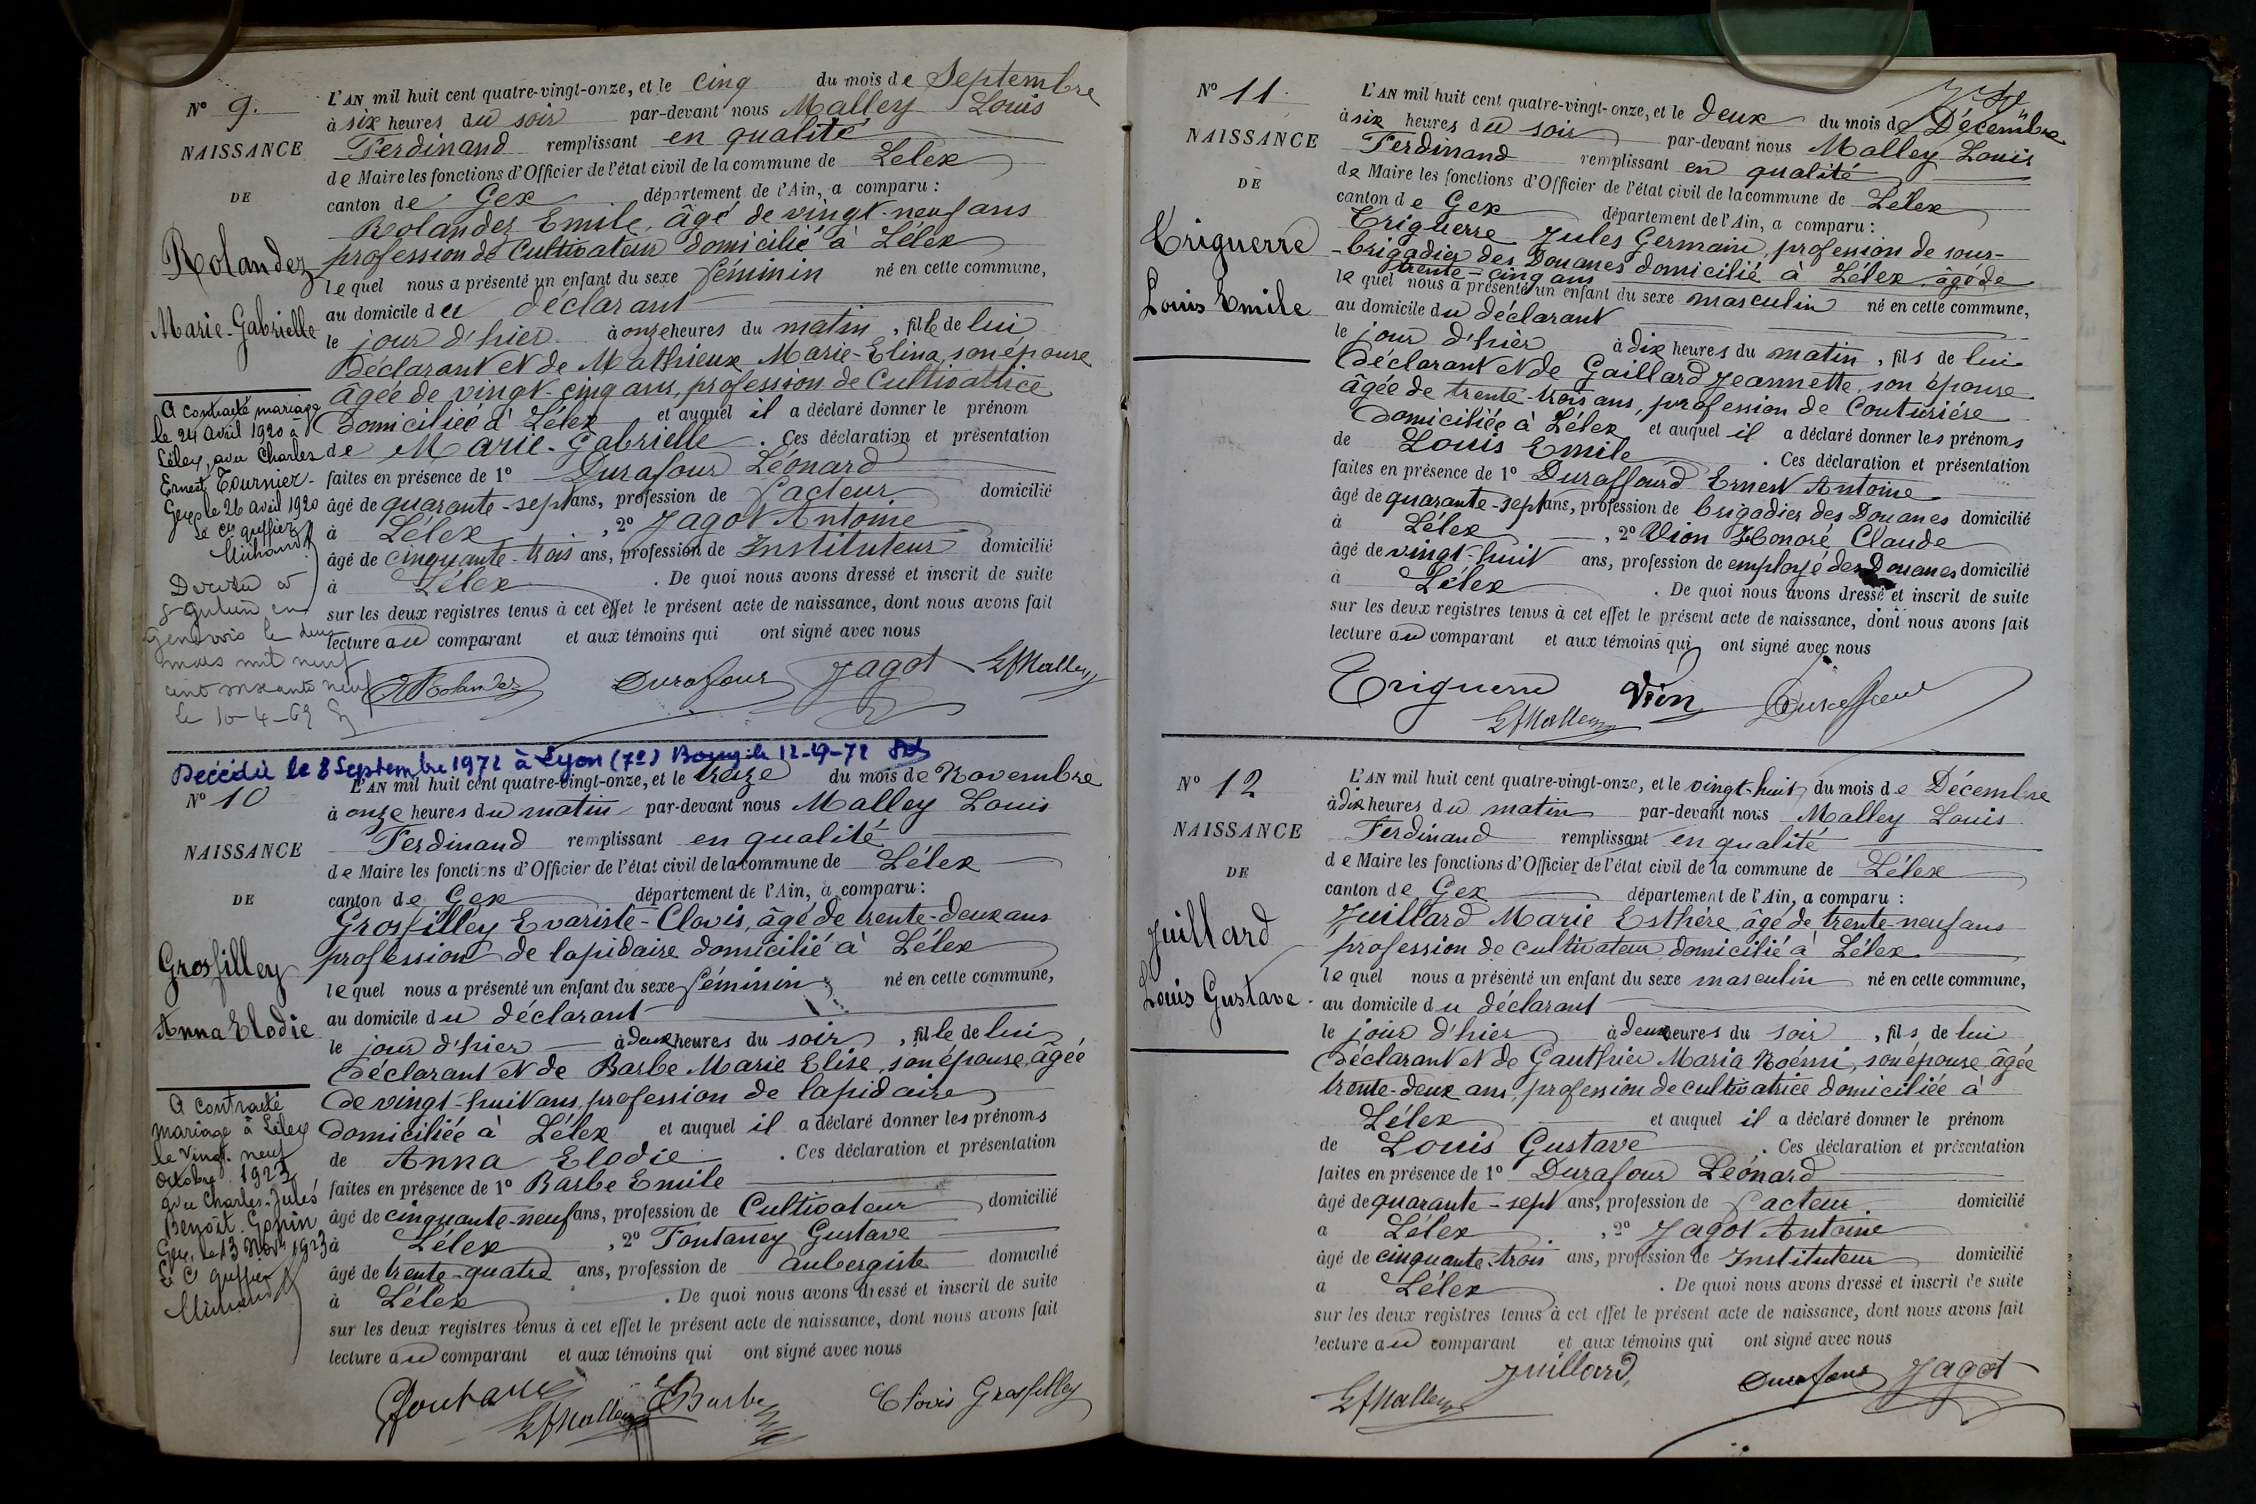 N° 9.
NAISSANCE
DE
Rolandez
Marie-Gabrielle
A contracté mariage
le 24 avril 1920 à
Lélex, avec Charles
Ernest Tournier-
Gex, le 26 avril 1920
Le Cis greffier
Décédée à
St Julien en
Genevois le deux
mars mil neuf
cent soixante neuf
le 10-4-69
L'AN mil huit cent quatre-vingt-onze, et le cinq du mois de Septembre
à six heures du soir par-devant nous Malley Louis
Ferdinand remplissant en qualité
de Maire les fonctions d'Officier de l'état civil de la commune de Lélex
canton de Gex département de l'Ain, a comparu :
Rolandez Emile, âgé de vingt-neuf ans
profession de Cultivateur domicilié à Lélex
lequel nous a présenté un enfant du sexe féminin né en cette commune,
au domicile du déclarant
le jour d'hier à onze heures du matin, fille de lui
déclarant et de Mathieux Marie-Elina, son épouse
âgée de vingt-cinq ans, profession de Cultivatrice
domiciliée à Lélex et auquel il a déclaré donner le prénom
de Marie-Gabrielle. Ces déclaration et présentation
faites en présence de 1° Durafour Léonard
âgé de quarante-sept ans, profession de facteur domicilié
à Lélex, 2° Jagot Antoine
âgé de cinquante-trois ans, profession de Instituteur domicilié
à Lélex. De quoi nous avons dressé et inscrit de suite
sur les deux registres tenus à cet effet le présent acte de naissance, dont nous avons fait
lecture au comparant et aux témoins qui ont signé avec nous
Rolandez Durafour Jagot LfMalley
Décédée le 8 Septembre 1972 à Lyon (7e) Bourg le 12-9-72
N° 10
NAISSANCE
DE
Grosfilley
Anna Elodie
A contracté
mariage à Lélex
le vingt-neuf
octobre 1923
avec Charles-Jules
Benoît Gonin
Gex, le 13 Nov 1923
Le Cis greffier
L'AN mil huit cent quatre-vingt-onze, et le treize du mois de Novembre
à onze heures du matin par-devant nous Malley Louis
Ferdinand remplissant en qualité
de Maire les fonctions d'Officier de l'état civil de la commune de Lélex
canton de Gex département de l'Ain, a comparu :
Grosfilley Evariste-Clovis, âgé de trente-deux ans
profession de lapidaire domicilié à Lélex
lequel nous a présenté un enfant du sexe féminin né en cette commune,
au domicile du déclarant
le jour d'hier à deux heures du soir, fille de lui
déclarant et de Barbe Marie Elise, son épouse, âgée
de vingt-huit ans, profession de lapidaire
domiciliée à Lélex et auquel il a déclaré donner les prénoms
de Anna Elodie. Ces déclaration et présentation
faites en présence de 1° Barbe Emile
âgé de cinquante-neuf ans, profession de Cultivateur domicilié
à Lélex, 2° Fontaney Gustave
âgé de trente-quatre ans, profession de aubergiste domicilié
à Lélex. De quoi nous avons dressé et inscrit de suite
sur les deux registres tenus à cet effet le présent acte de naissance, dont nous avons fait
lecture au comparant et aux témoins qui ont signé avec nous
LfMalley E Barbe Clovis Grosfilley
N° 11
NAISSANCE
DE
Criguerre
Louis Emile
L'AN mil huit cent quatre-vingt-onze, et le deux du mois de Décembre
à six heures du soir par-devant nous Malley Louis
Ferdinand remplissant en qualité
de Maire les fonctions d'Officier de l'état civil de la commune de Lélex
canton de Gex département de l'Ain, a comparu :
Criguerre Jules Germain, profession de sous-
-brigadier des Douanes domicilié à Lélex, âgé de
trente-cinq ans
lequel nous a présenté un enfant du sexe masculin né en cette commune,
au domicile du déclarant
le jour d'hier à dix heures du matin, fils de lui
déclarant et de Gaillard Jeannette, son épouse
âgée de trente-trois ans, profession de Couturière
domiciliée à Lélex et auquel il a déclaré donner les prénoms
de Louis Emile. Ces déclaration et présentation
faites en présence de 1° Duraffourd Ernest Antoine
âgé de quarante-sept ans, profession de brigadier des Douanes domicilié
à Lélex, 2° Vion Honoré Claude
âgé de vingt-huit ans, profession de employé des Douanes domicilié
à Lélex. De quoi nous avons dressé et inscrit de suite
sur les deux registres tenus à cet effet le présent acte de naissance, dont nous avons fait
lecture au comparant et aux témoins qui ont signé avec nous
Criguerre Vion
LfMalley
N° 12
NAISSANCE
DE
Juillard
Louis Gustave
L'AN mil huit cent quatre-vingt-onze, et le vingt-huit du mois de Décembre
à dix heures du matin par-devant nous Malley Louis
Ferdinand remplissant en qualité
de Maire les fonctions d'Officier de l'état civil de la commune de Lélex
canton de Gex département de l'Ain, a comparu :
Juillard Marie Esthère, âgé de trente-neuf ans
profession de cultivateur domicilié à Lélex
lequel nous a présenté un enfant du sexe masculin né en cette commune,
au domicile du déclarant
le jour d'hier à deux heures du soir, fils de lui
déclarant et de Gauthier Maria Noémi, son épouse, âgée
trente-deux ans, profession de cultivatrice domiciliée à
Lélex et auquel il a déclaré donner le prénom
de Louis Gustave. Ces déclaration et présentation
faites en présence de 1° Durafour Léonard
âgé de quarante-sept ans, profession de facteur domicilié
à Lélex, 2° Jagot Antoine
âgé de cinquante-trois ans, profession de Instituteur domicilié
à Lélex. De quoi nous avons dressé et inscrit de suite
sur les deux registres tenus à cet effet le présent acte de naissance, dont nous avons fait
lecture au comparant et aux témoins qui ont signé avec nous
LfMalley Juillard Durafour Jagot